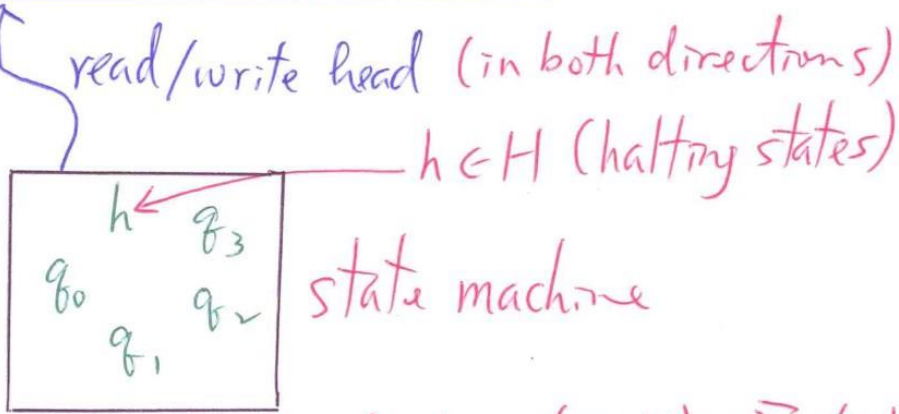 read/write head (in both directions)
h∈H (halting states)
h
q₃
q₀
q₂
q₁
state machine